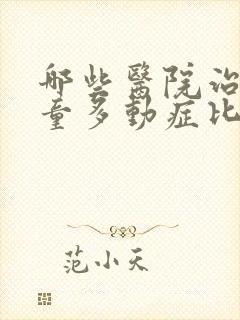 哪些醫院治
童多動症比
范小天